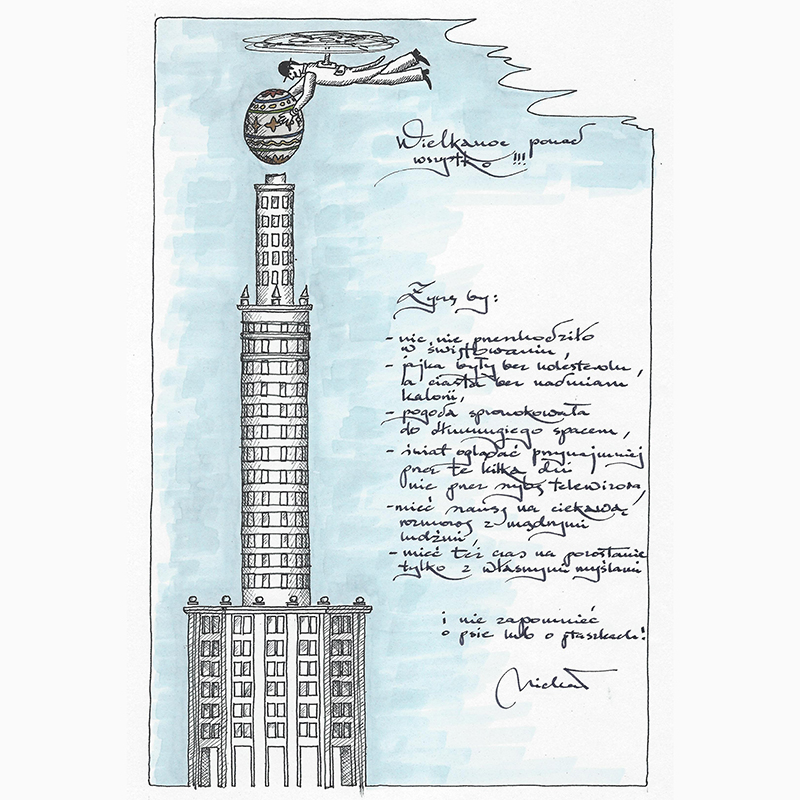 Wielkanoc ponad
wszystko !!!
Życzę by:
- nic nie przeszkodziło
w świętowaniu,
- jajka były bez cholesterolu,
a ciasta bez nadmiaru
kalorii,
- pogoda sprowokowała
do dłuuuugiego spaceru,
- świat oglądać przynajmniej
przez te kilka dni
nie przez szybę telewizora,
- mieć szansę na ciekawą
rozmowę z mądrymi
ludźmi,
- mieć też czas na pozostanie
tylko z własnymi myślami
i nie zapomnieć
o psie lub o ptaszkach!
Michał